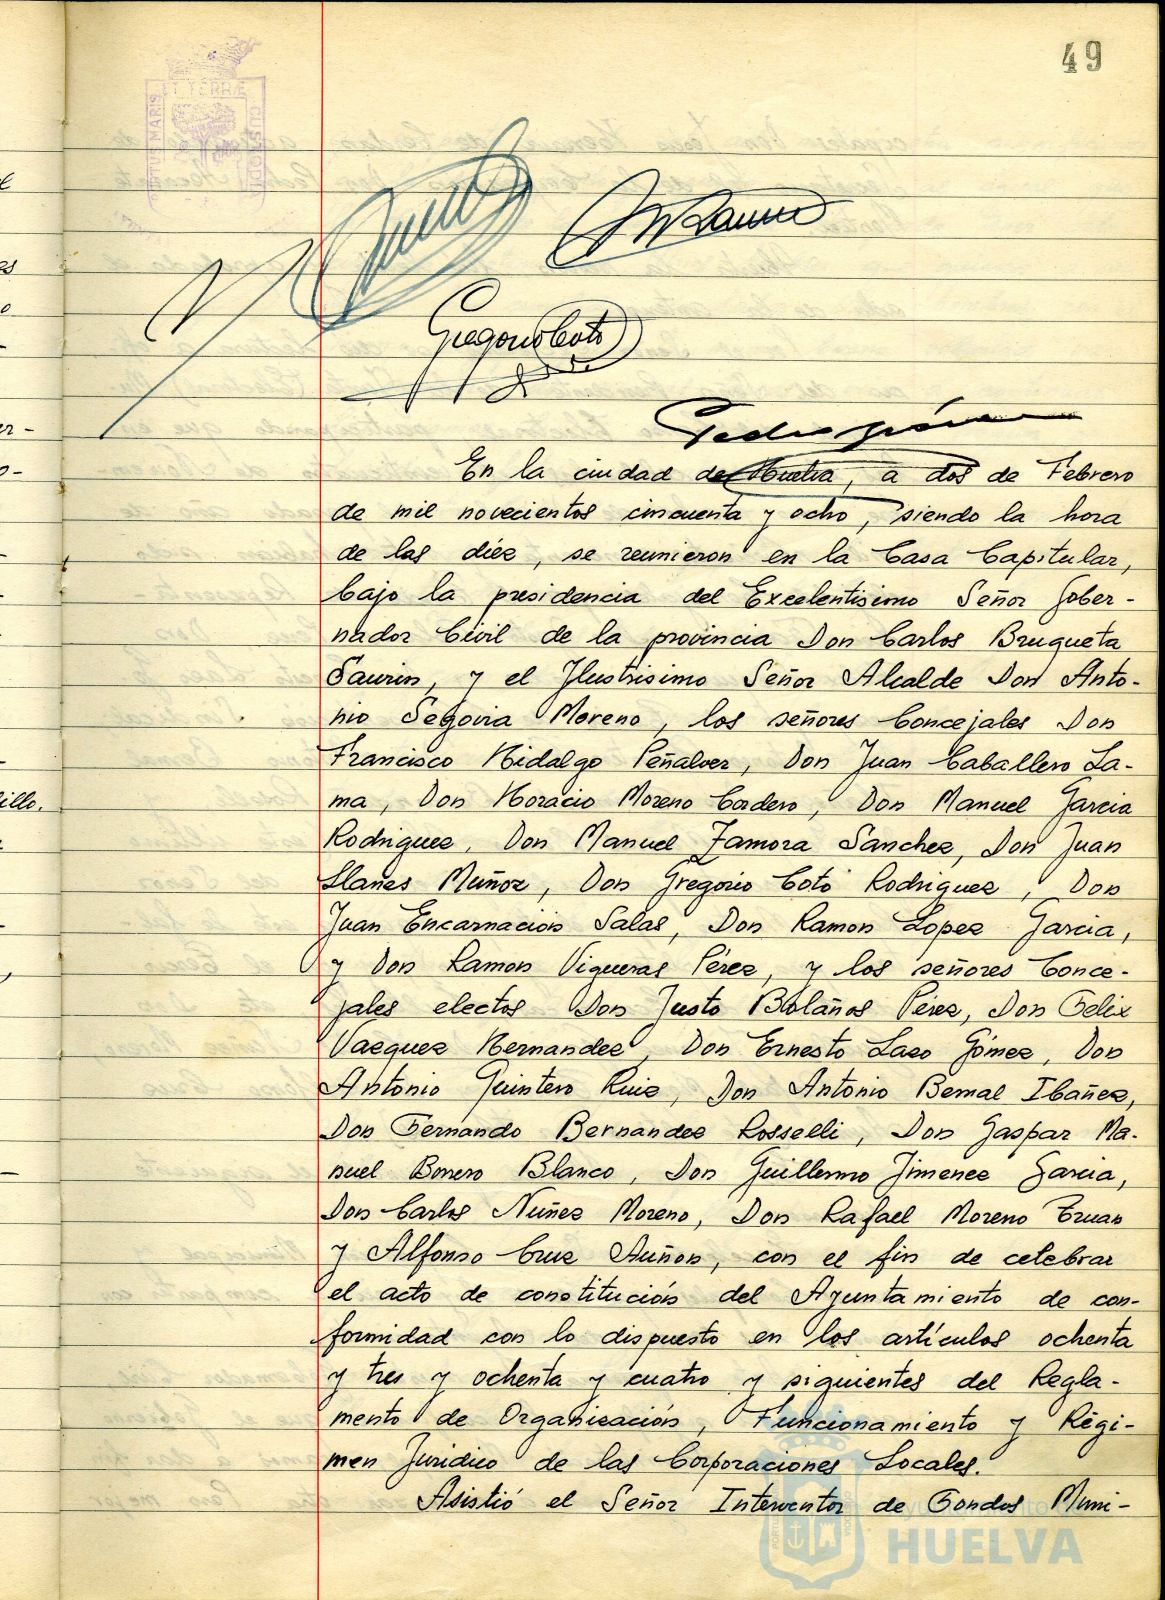 49
PORTUS MARIS ET TERRÆ CUSTODIA
Gregorio Coto
En la ciudad de Huelva, a dos de Febrero
de mil novecientos cincuenta y ocho, siendo la hora
de las diez, se reunieron en la Casa Capitular,
bajo la presidencia del Excelentisimo Señor Gober-
nador Civil de la provincia Don Carlos Bruqueta
Saurin, y el Ilustrisimo Señor Alcalde Don Anto-
nio Segovia Moreno, los señores Concejales Don
Francisco Hidalgo Peñalver, Don Juan Caballero La-
ma, Don Horacio Moreno Cordero, Don Manuel Garcia
Rodriguez, Don Manuel Zamora Sanchez, Don Juan
Llanes Muñoz, Don Gregorio Coto Rodriguez, Don
Juan Encarnación Salas, Don Ramon Lopez Garcia,
y Don Ramon Vigueras Pérez, y los señores Conce-
jales electos Don Justo Bolaños Pérez, Don Felix
Vazquez Hernandez, Don Ernesto Lazo Gómez, Don
Antonio Quintero Ruiz, Don Antonio Bernal Ibañez,
Don Fernando Bernandez Rosselli, Don Gaspar Ma-
nuel Borrero Blanco, Don Guillermo Jimenez Garcia,
Don Carlos Nuñez Moreno, Don Rafael Moreno
y Alfonso Cruz Auñon, con el fin de celebrar
el acto de constitución del Ayuntamiento de con-
formidad con lo dispuesto en los artículos ochenta
y tres y ochenta y cuatro y siguientes del Regla-
mento de Organización, Funcionamiento y Régi-
men Juridico de las Corporaciones Locales.
Asistió el Señor Interventor de Fondos Muni-
HUELVA